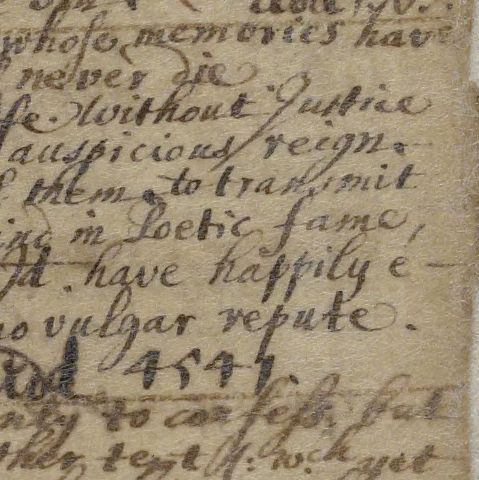 whose memories have
never die
fe. without Justice
auspicious reign.
them, to transmit
in Poetic fame,
have happily e-
no vulgar repute.
4541
to confess, but
ther text w:ch yet